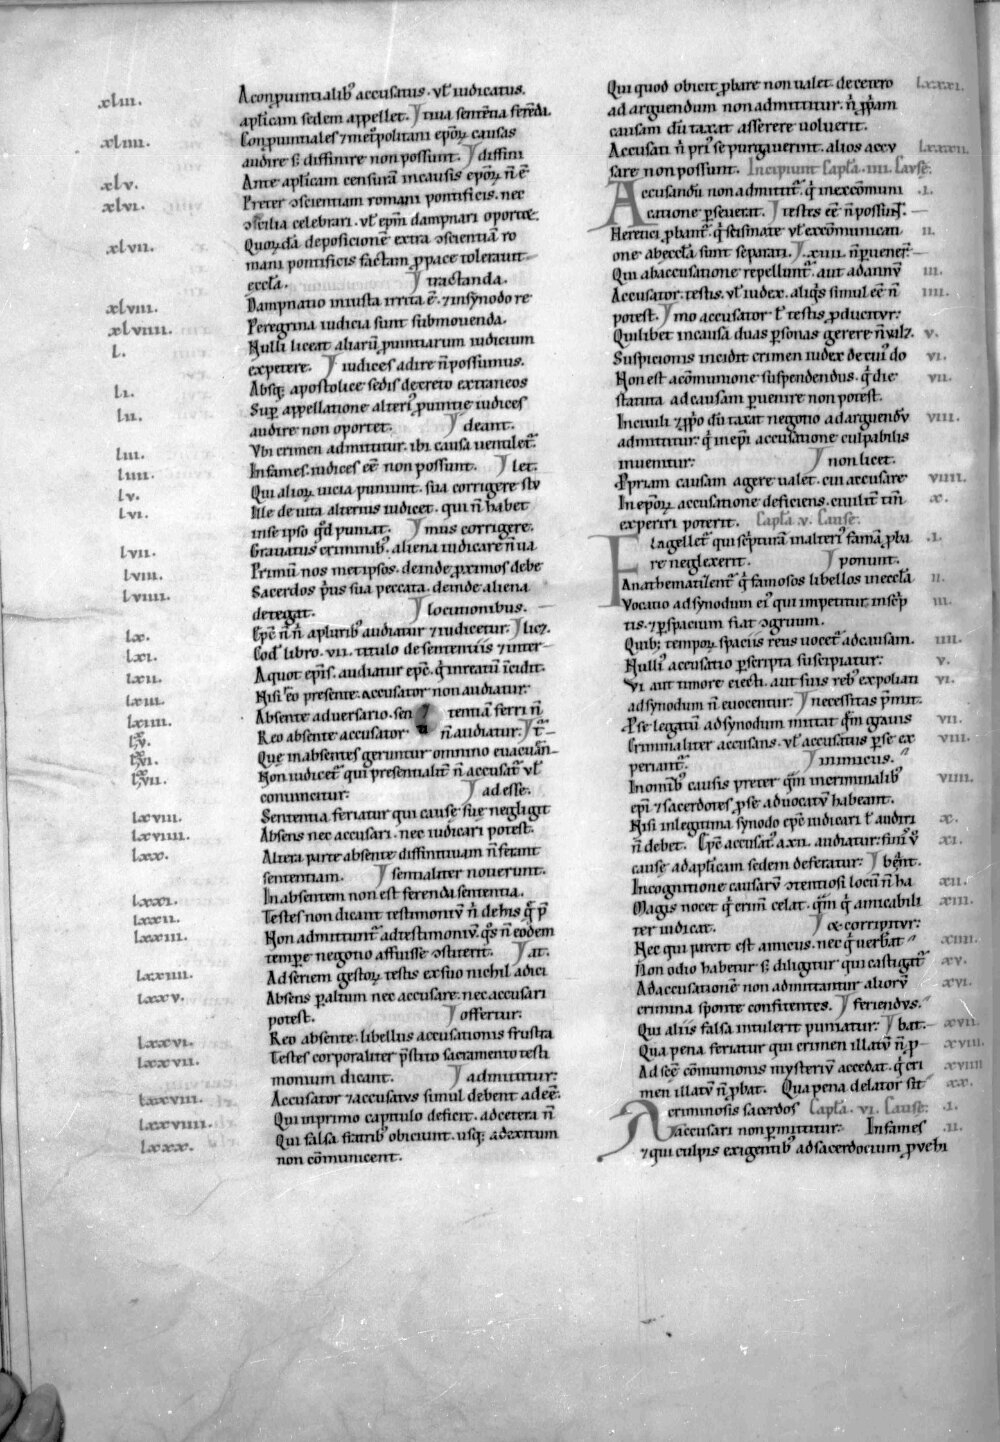 xliii. A conp̱uintialibꝫ accusatus. vł iudicatus.
apl̄icam sedem appellet. ꟾ tiua sentētia ferēda.
xliiii. Conp̱uintiales ⁊ metꝓpolitani ep̄oꝝ causas
audire sꝫ diffinire non possunt. ꟾ diffini
xlv. Ante apl̄icam censurā in causis ep̄oꝝ ñ ē
xlvi. Preter ɔscientiam romani pontificis. nec
ɔcilia celebrari. vł ep̄m dampnari oportet.
xlvii. Quorūdā deposicionē extra ɔscientiā ro
mani pontificis factam ꝓ pace tolerauit
ecct̄a. ꟾ tractanda.
xlviii. Dampnatio iniusta irrita ē. ⁊ in synodo re
xlviiii. Peregrina iudicia sunt submouenda.
l. Nulli liceat aliarū ꝓuintiarum iudicium
expetere. ꟾ iudices adire ñ possumus.
li. Absqꝫ apostolice sedis decreto extraneos
lii. Suꝑ appellatione alteriꝰ ꝓuintie iudices
audire non oportet. ꟾ deant.
liii. Vbi crimen admittitur. ibi causa uentiletᷣ.
liiii. Infames. iudices eē non possunt. ꟾ let.
lv. Qui alioꝝ uicia puniunt. sua corrigere stu
lvi. Ille de uita alterius iudicet. qui ñ habet
in se ipso qd̓ puniat. ꟾ mus corrigere.
lvii. Grauatus criminibꝫ. aliena iudicare ñ ua
lviii. Primū nos metipsos. deinde ꝓximos debe
lviiii. Sacerdos pͥus sua peccata. deinde aliena
detegat. ꟾ locutionibus.
lx. Ep̄c ñ nͥ a pluribꝫ audiatur ⁊ iudicetur. ꟾ licꝫ.
lxi. Cod̓ libro. vii. titulo de sententiis ⁊ inter
lxii. A quot ep̄is. audiatur ep̄c. qͥ in reatū īcidit.
lxiii. Nisi eo presente. accusator non audiatur.
lxiiii. Absente aduersario. sen tentiā ferri ñ
lxv. Reo absente accusator ñ audiatur. ꟾ tᷣ
lxvi. Que in absentes geruntur omnino euacuan
lxvii. Non iudicetᷣ qui presentialitͬ ñ accusatᷣ vł
conuincitur. ꟾ adesse.
lxviii. Sententia feriatur qui cause suę negligit
lxviiii. Absens nec accusari. nec iudicari potest.
lxx. Altera parte absente diffinitiuam ñ ferant
sententiam. ꟾ sentialiter nouerunt.
lxxi. In absentem non est ferenda sententia.
lxxii. Testes non dicant testimoniū nͥ de his qͤ p̄
lxxiii. Non admittuntᷣ ad testimoniū. qͦs ñ eodem
tempe negotio affuisse ɔstiterit. ꟾ at.
lxxiiii. Ad seriem gestoꝝ testis ex suo nichil adici
lxxv. Absens ꝑ alium nec accusare. nec accusari
potest. ꟾ offertur.
lxxvi. Reo absente. libellus accusationis frustra
lxxvii. Testes corporaliter p̄stito sacramento testi
monium dicant. ꟾ admittitur.
lxxviii. Accusator ⁊ accusatus simul debent adeē.
lxxviiii. Qui in primo capitulo deficit. ad cetera ñ
lxxx. Qui falsa fratribꝫ obiciunt. usqꝫ ad exitum
non cōmunicent.
Qui quod obicit ꝓbare non ualet. de cetero lxxxi.
ad arguendum non admittitur. nͥ ꝓpriam
causam dū taxat asserere uoluerit.
Accusati nͥ priꝰ se purgauerint. alios accu lxxxii.
sare non possunt. Incipiunt Capła. iiii. Cause.
Accusandū non admittitᷣ. qͥ in excōmuni .i.
catione ꝑseuerat. ꟾ testes eē ñ possunt.
Heretici ꝓbantᷣ. qͥ scismate vł excōmunicati ii.
one ab ecct̄a sunt separati. ꟾ .xiiii. ñ ꝑuenetᷣ.
Qui ab accusatione repelluntᷣ. aut ad annū iii.
Accusator. testis. vł iudex. aliqͥs simul eē ñ iiii.
potest. ꟾ mo accusator ł testis ꝓducitur.
Quilibet in causa duas ꝑsonas gerere ñ ualꝫ. v.
Suspicionis incidit crimen iudex de cuiꝰ do vi.
Non est a cōmunione suspendendus. qͥ die vii.
statuta ad causam ꝑuenire non potest.
In ciuili ⁊ ꝓpͥo dū taxat negotio ad arguendū viii.
admittitur. qͥ in ep̄i accusatione culpabilis
inuenitur. ꟾ non licet.
Ꝓpriam causam agere ualet. cui accusare viiii.
In ep̄oꝝ accusatione deficiens. ciuilitͬ tm̄ x.
experiri poterit. Capła .v. Cause.
Flagelletᷣ qui scͥpturā in alteriꝰ famā ꝓba .i.
re neglexerit. ꟾ ponunt.
Anathematizentᷣ qͥ famosos libellos in ecct̄a ii.
Vocatio ad synodum eiꝰ qui impetitur. in scͥp iii.
tis. ⁊ ꝑ spacium fiat ɔgruum.
Quibꝫ tempoꝝ spaciis reus uocetᷣ ad causam. iiii.
Nulliꝰ accusatio ꝑ scripta suscipiatur. v.
Vi aut timore eiecti. aut suis rebꝫ expoliati vi.
ad synodum ñ euocentur. ꟾ necessitas ꝑmit.
Ꝑ se legatū ad synodum mittat. qͤm grauis vii.
Criminaliter accusans. vł accusatus ꝑ se ex viii.
periantᷣ. ꟾ inimicus.
In omībꝫ causis preter qͣm in criminalibꝫ viiii.
ep̄i ⁊ sacerdotes ꝓ se aduocatū habeant.
Nisi in legitima synodo ep̄c iudicari ł audiri x.
ñ debet. Ep̄c accusatꝰ a .xii. audiatur. finiꝰ ū xi.
cause ad apl̄icam sedem deferatur. ꟾ bent.
In cognitione causarū ɔtentiosi locū ñ ha xii.
Magis nocet qͥ crim̄ celat. qͣm qͥ amicabili xiii.
ter iudicat. ꟾ & corripitur.
Nec qui parcit est amicus. nec qͥ uerbat xiiii.
Non odio habetur sꝫ diligitur qui castigatᷣ xv.
Ad accusationē non admittantur aliorū xvi.
crimina sponte confitentes. ꟾ feriendus.
Qui aliis falsa intulerit puniatur. ꟾ bat. xvii.
Qua pena feriatur qui crimen illatū ñ ꝓ xviii.
Ad sc̄e cōmunionis mysteriū accedat. qͥ cri xviiii
men illatū ñ ꝓbat. Qua pena delator sit xx.
A criminosis sacerdos Capła. vi. Cause. .i.
accusari non ꝑmittitur. Infames .ii.
⁊ qui culpis exigentibꝫ ad sacerdocium ꝓuehi